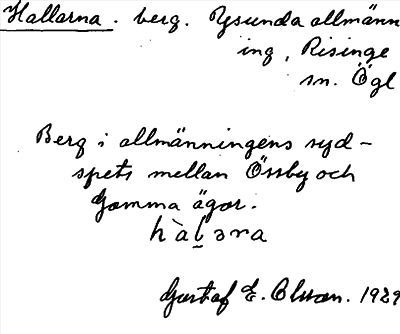 Hallarna. berg. Rysunda allmänn
ing, Risinge
sn. Ögl
Berg i allmänningens syd-
spets mellan Össby och
Gamma ägor.
hàḷəra
Gustaf E. Olsson. 1929